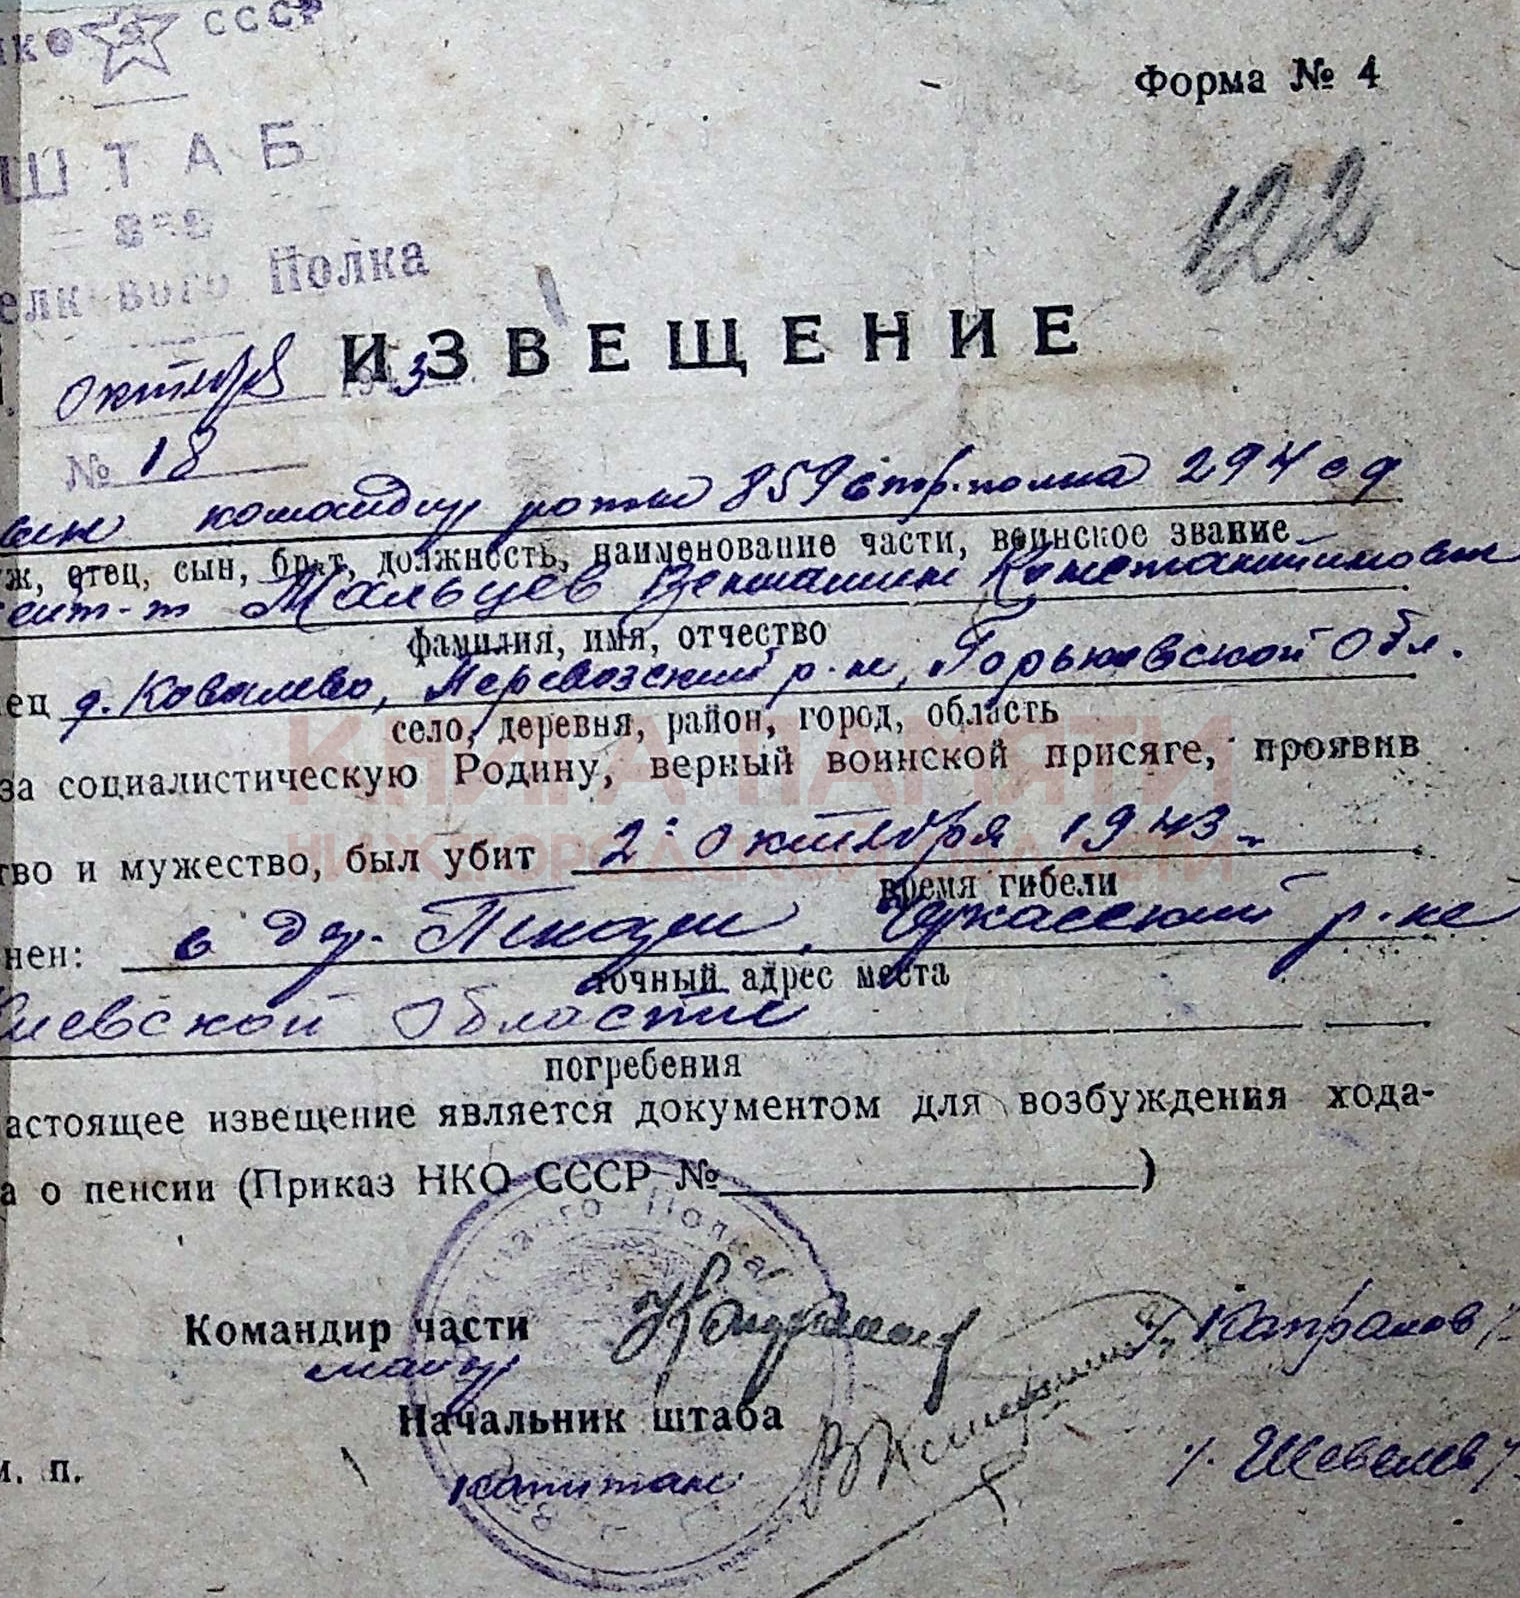 НКО СССР
Форма № 4
ШТАБ
122
Полка
ИЗВЕЩЕНИЕ
октября 1943
№ 18
командир роты 859 стр. полка 294 сд
отец, сын, брат, должность, наименование части, воинское звание
Мальцев Вениамин Константинович
фамилия, имя, отчество
д. Ковалево, Перевозский р-н, Горьковской обл.
село, деревня, район, город, область
КНИГА ПАМЯТИ
за социалистическую Родину, верный воинской присяге, проявив
НИЖЕГОРОДСКОЙ ОБЛАСТИ
тво и мужество, был убит 2 октября 1943
время гибели
нен: в дер.
р-не
точный адрес места
Киевской области
погребения
астоящее извещение является документом для возбуждения хода-
а о пенсии (Приказ НКО СССР № )
Полка
Командир части
майор
Капралов
Начальник штаба
капитан
Шевелев
м. п.